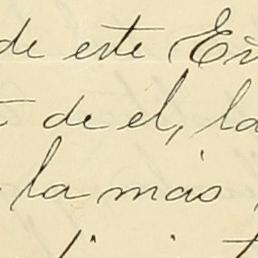 de este
de el, la
la más